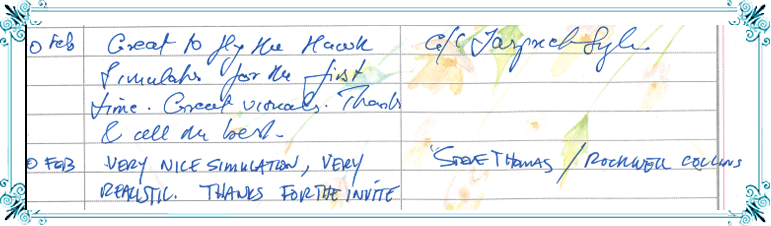 0 Feb Great to fly the Hawk G/C
Simulator for the first
time. Great visuals. Thanks
& all the best.
0 FEB VERY NICE SIMULATION, VERY "STEVE THOMAS / ROCKWELL COLLINS
REALISTIC. THANKS FOR THE INVITE